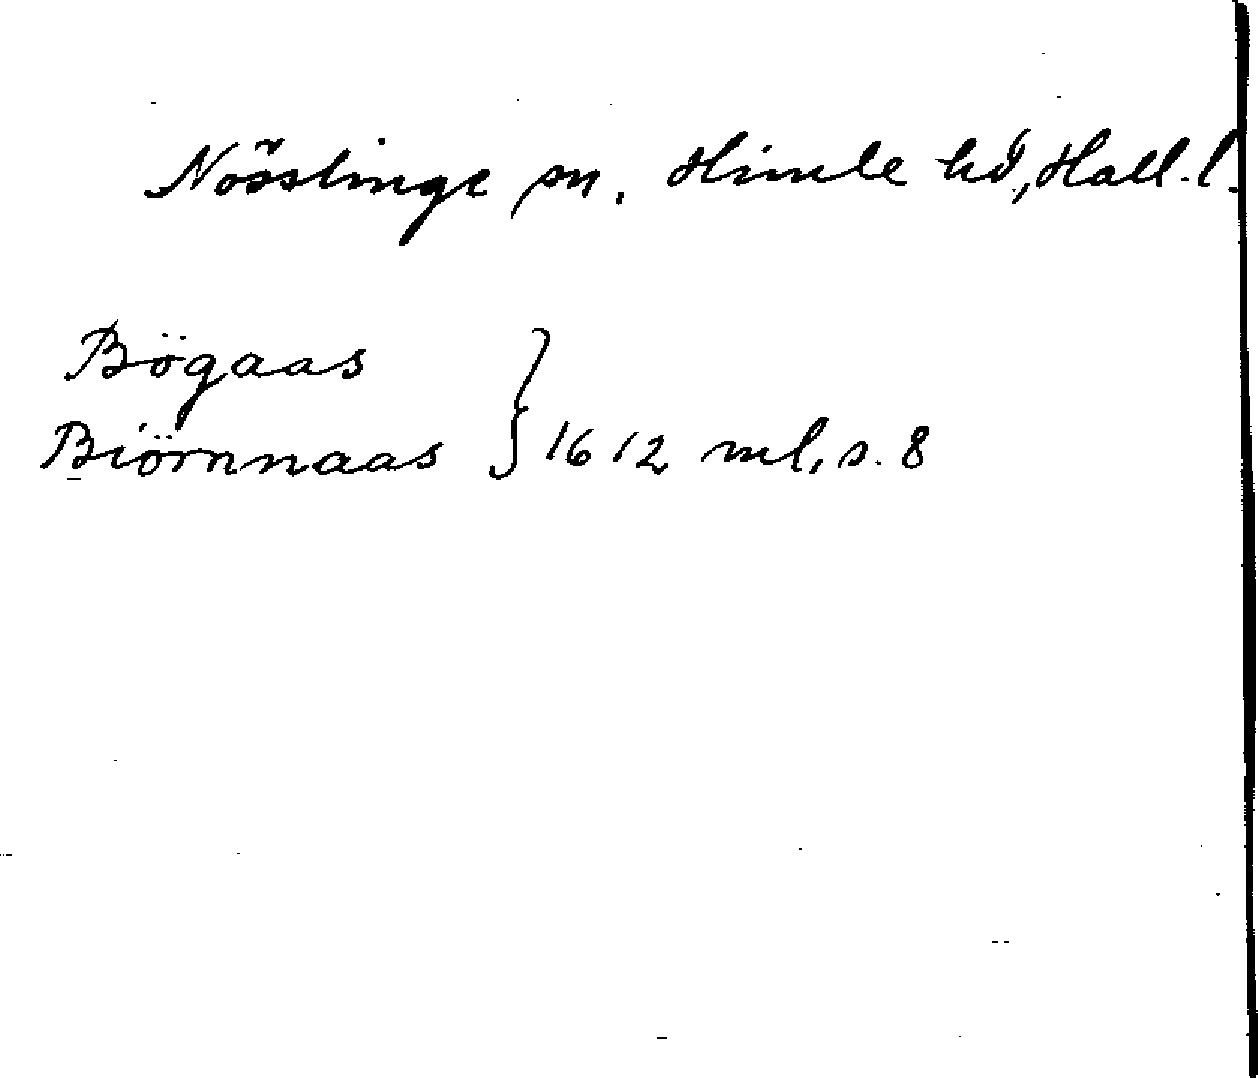 Nösslinge sn. Himle hd, Hall. l.
Bögaas
Biörnnaas } 1612 ml, s. 8